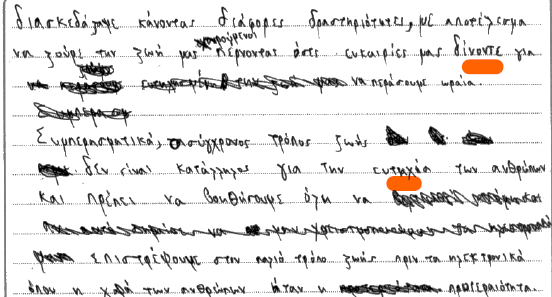 διασκεδάζαμε κάνοντας διάφορες δραστηριότητες, με αποτέλεσμα
να ζούμε την ζωή μας χαρούμενοι πέρνοντας ότι ευκαιρίες μας δίνοντε για
να περάσουμε ωραία.
Συμπερασματικά, ο σύγχρονος τρόπος ζωής
δεν είναι κατάλληλος για την ευτηχία των ανθρώπων
και πρέπει να βοηθήσουμε όλη να
επιστρέψουμε στον παλιό τρόπο ζωής πριν τα ηλεκτρονικά
όπου η χαρά των ανθρώπων ήταν η προτεραιότητα.